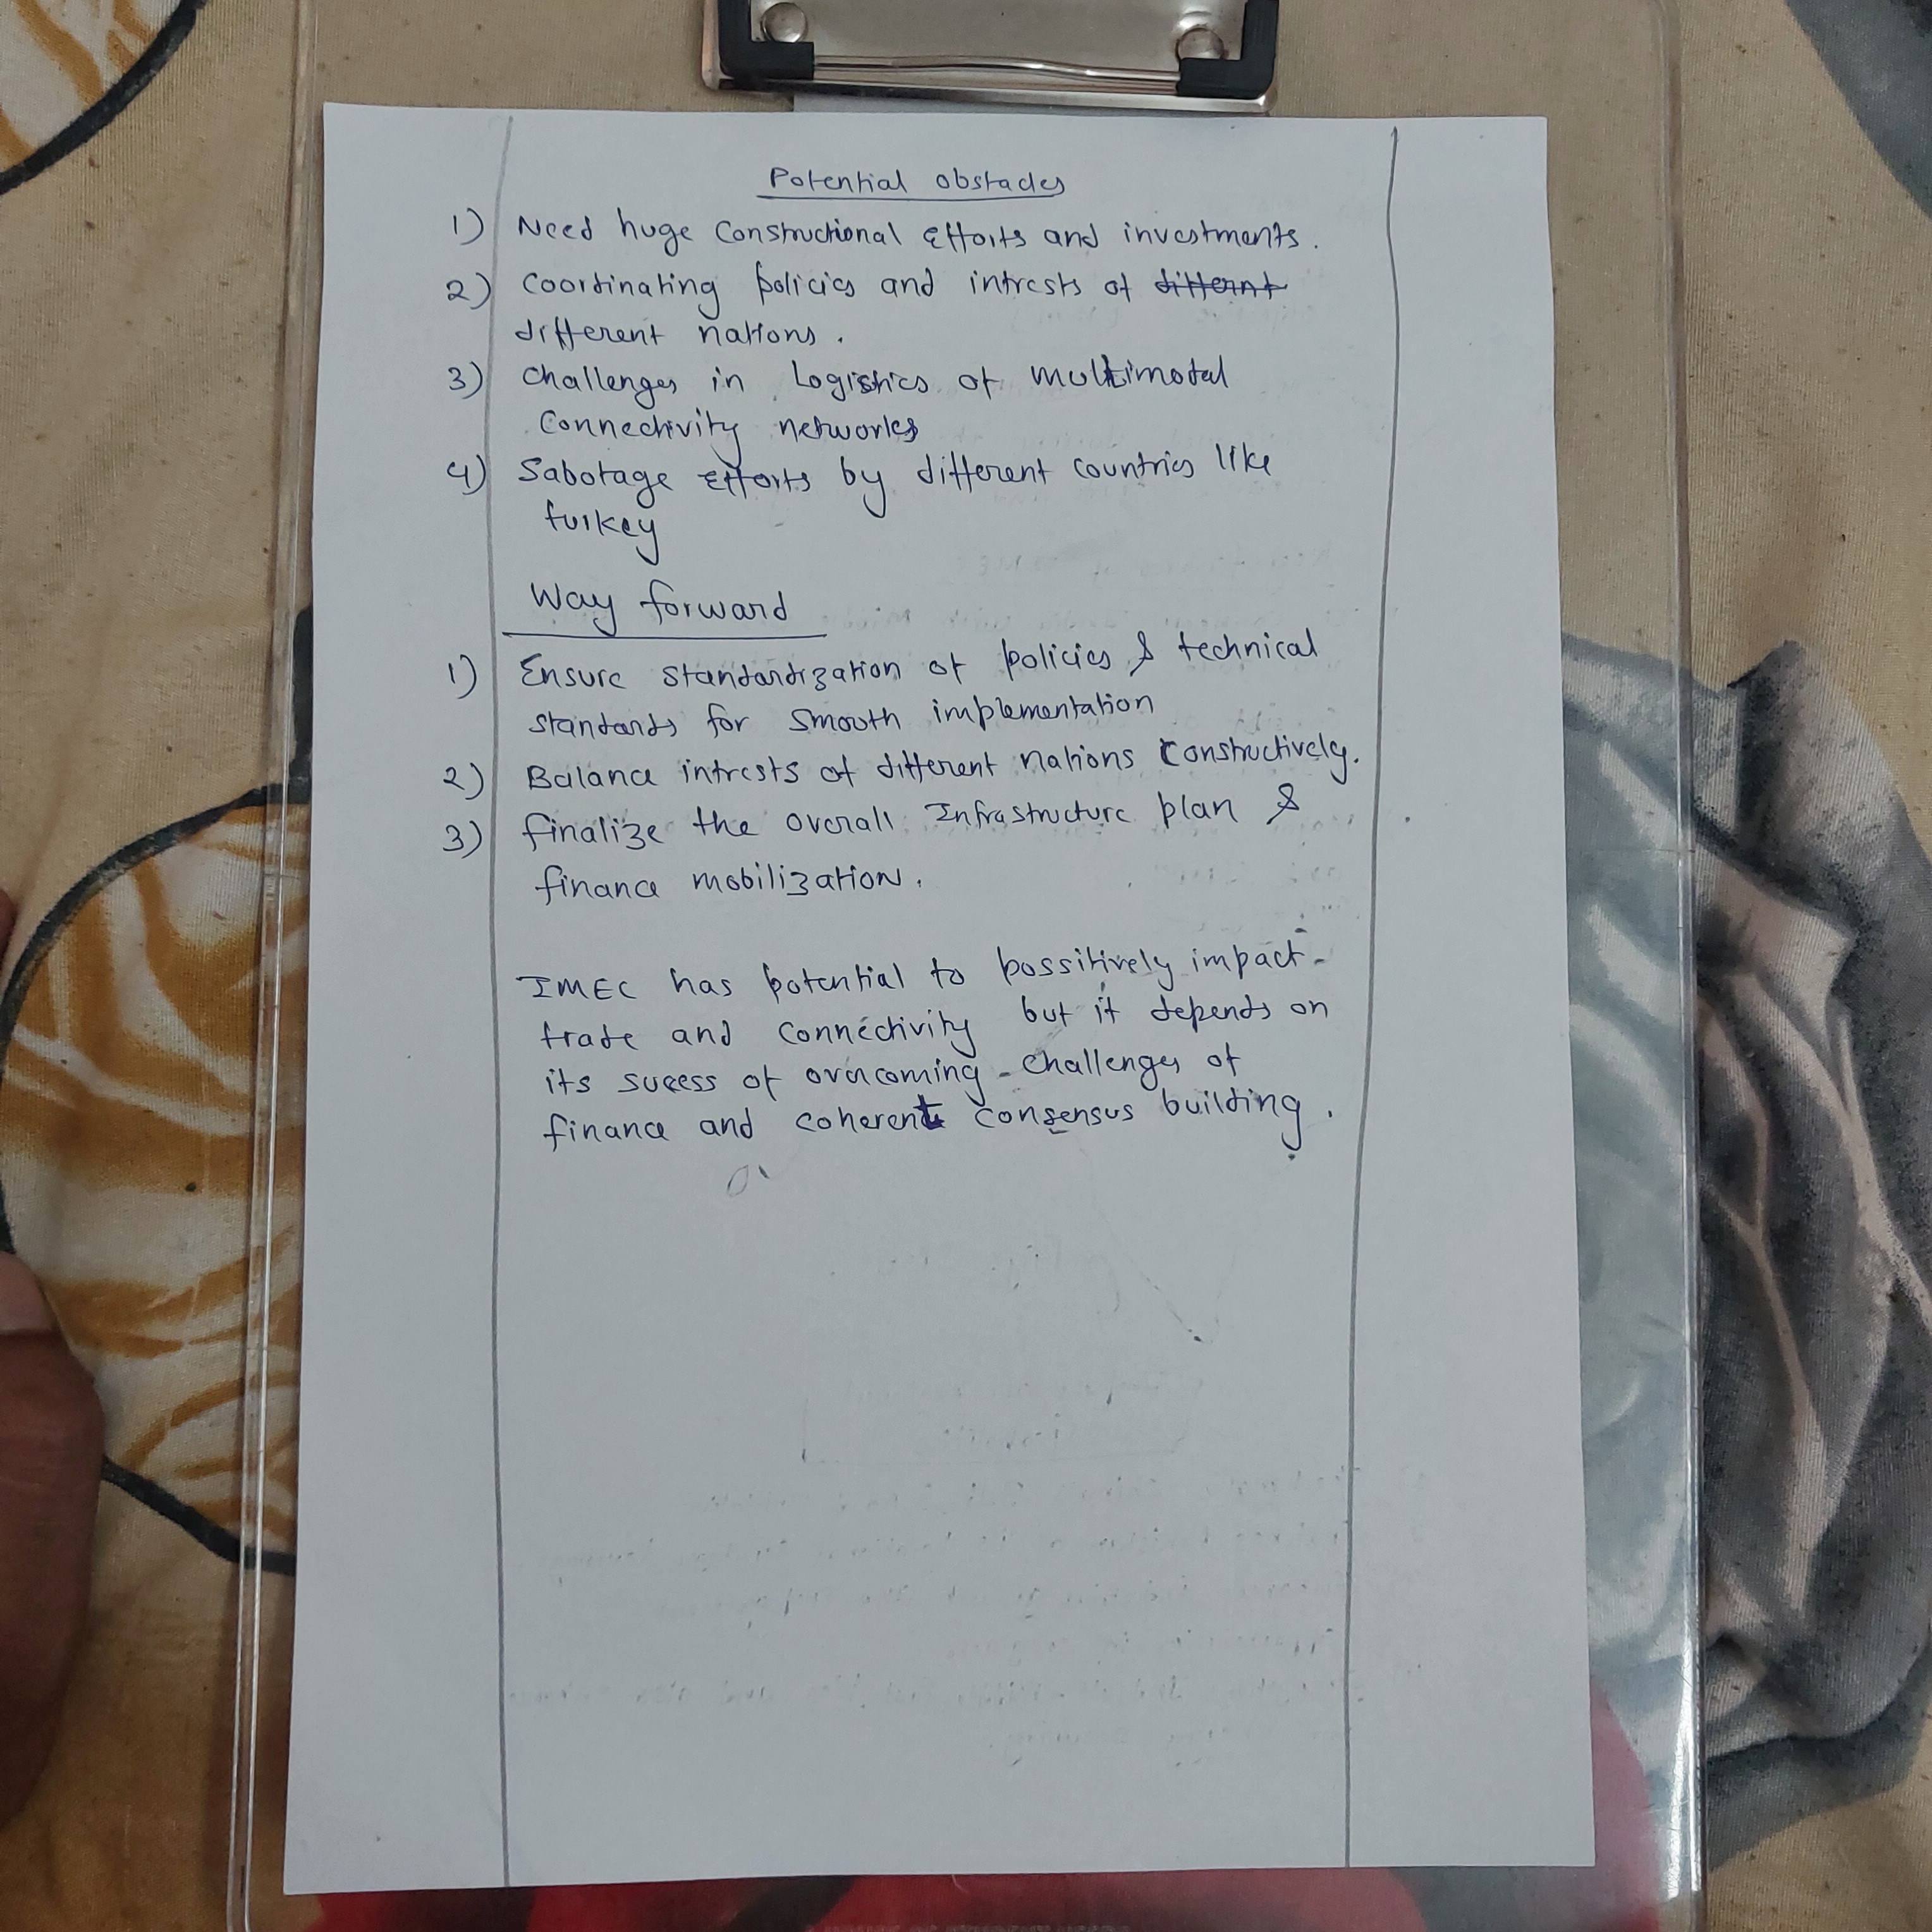 Potential obstacles
1) Need huge Constructional Efforts and investments.
2) Coordinating policies and intrests of differnt
different nations.
3) Challenges in Logistics of multimodal
Connectivity networks
4) Sabotage Efforts by different countries like
turkey
Way forward
1) Ensure standardization of policies & technical
standards for smooth implementation
2) Balance intrests of different nations constructively.
3) finalize the overall Infrastructure plan &
finance mobilization.
IMEC has potential to possitively impact
trade and connectivity but it depends on
its sucess of overcoming challenges of
finance and coherent consensus building.